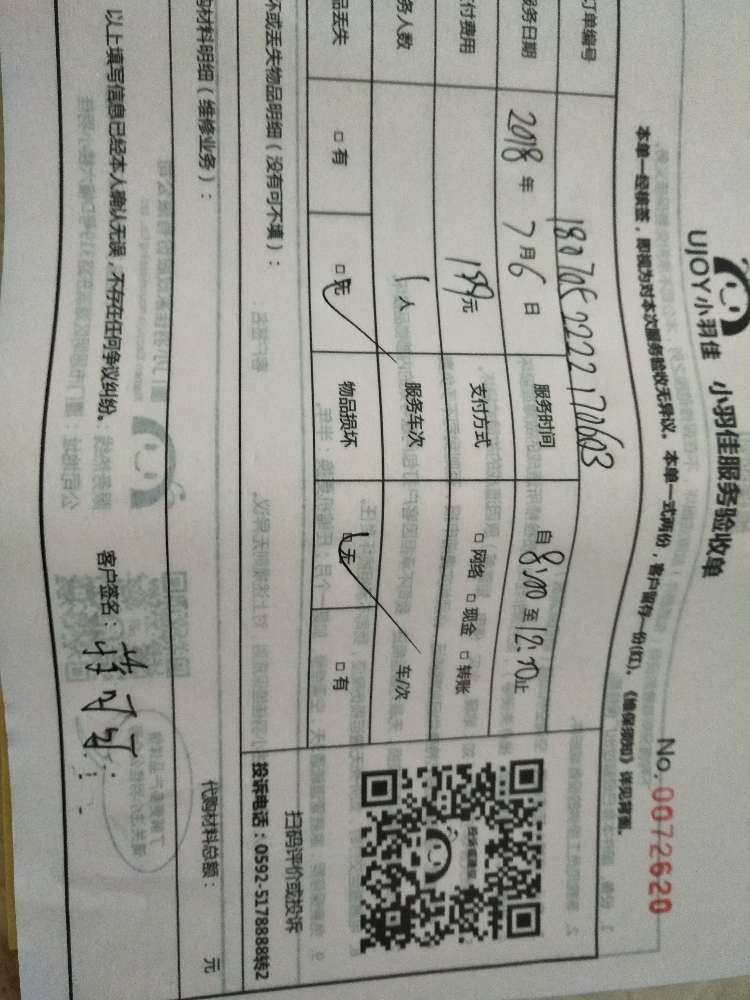 UJOY小羽佳 小羽佳服务验收单
No. 0072620
本单一经核签，即视为对本次服务验收无异议。本单一式两份，客户留存一份(红)。《维保须知》详见背面。
订单编号 1807052222170603
服务日期 2018年7月6日 服务时间 自8:00至12:00止
付费用 199元 支付方式 □网络 □现金 □转账
务人数 1人 服务车次 车/次
品丢失 □有 □无 物品损坏 □无 □有
坏或丢失物品明细（没有可不填）：
扫码评价或投诉
投诉电话：0592-5178888转2
购材料明细（维修业务）：
代购材料总额： 元
以上填写信息已经本人确认无误，不存在任何争议纠纷。 客户签名：